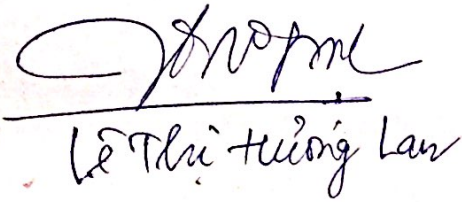 Lê Thị Hương Lan